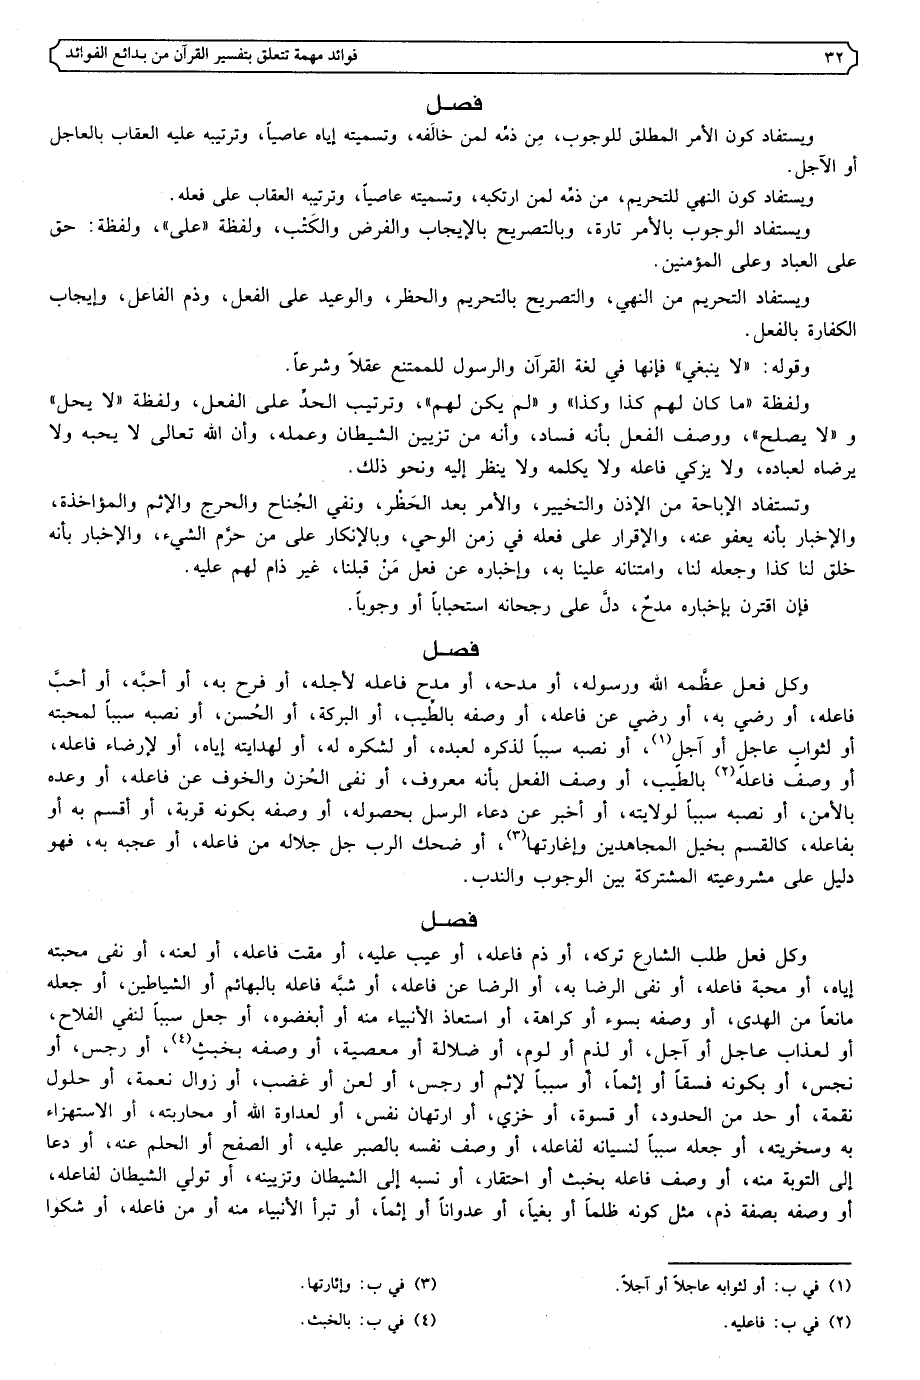 ٣٢
فوائد مهمة تتعلق بتفسير القرآن من بدائع الفوائد
فصـل
ويستفاد كون الأمر المطلق للوجوب، مِن ذمِّه لمن خالَفه، وتسميته إياه عاصياً، وترتيبه عليه العقاب بالعاجل
أو الآجل.
ويستفاد كون النهي للتحريم، من ذمِّه لمن ارتكبه، وتسميته عاصياً، وترتيبه العقاب على فعله.
ويستفاد الوجوب بالأمر تارة، وبالتصريح بالإيجاب والفرض والكَتْب، ولفظة «على»، ولفظة: حق
على العباد وعلى المؤمنين.
ويستفاد التحريم من النهي، والتصريح بالتحريم والحظر، والوعيد على الفعل، وذم الفاعل، وإيجاب
الكفارة بالفعل.
وقوله: «لا ينبغي» فإنها في لغة القرآن والرسول للممتنع عقلاً وشرعاً.
ولفظة «ما كان لهم كذا وكذا» و «لم يكن لهم»، وترتيب الحدِّ على الفعل، ولفظة «لا يحل»
و «لا يصلح»، ووصف الفعل بأنه فساد، وأنه من تزيين الشيطان وعمله، وأن الله تعالى لا يحبه ولا
يرضاه لعباده، ولا يزكي فاعله ولا يكلمه ولا ينظر إليه ونحو ذلك.
وتستفاد الإباحة من الإذن والتخيير، والأمر بعد الحَظْر، ونفي الجُناح والحرج والإثم والمؤاخذة،
والإخبار بأنه يعفو عنه، والإقرار على فعله في زمن الوحي، وبالإنكار على من حرَّم الشيء، والإخبار بأنه
خلق لنا كذا وجعله لنا، وامتنانه علينا به، وإخباره عن فعل مَنْ قبلنا، غير ذام لهم عليه.
فإن اقترن بإخباره مدحٌ، دلَّ على رجحانه استحباباً أو وجوباً.
فصـل
وكل فعل عظَّمه الله ورسوله، أو مدحه، أو مدح فاعله لأجله، أو فرح به، أو أحبَّه، أو أحبَّ
فاعله، أو رضي به، أو رضي عن فاعله، أو وصفه بالطِّيب، أو البركة، أو الحُسن، أو نصبه سبباً لمحبته
أو لثوابٍ عاجل أو آجل(١)، أو نصبه سبباً لذكره لعبده، أو لشكره له، أو لهدايته إياه، أو لإرضاء فاعله،
أو وصف فاعله(٢) بالطِّيب، أو وصف الفعل بأنه معروف، أو نفى الحُزن والخوف عن فاعله، أو وعده
بالأمن، أو نصبه سبباً لولايته، أو أخبر عن دعاء الرسل بحصوله، أو وصفه بكونه قربة، أو أقسم به أو
بفاعله، كالقسم بخيل المجاهدين وإغارتها(٣)، أو ضحك الرب جل جلاله من فاعله، أو عجبه به، فهو
دليل على مشروعيته المشتركة بين الوجوب والندب.
فصـل
وكل فعل طلب الشارع تركه، أو ذم فاعله، أو عيب عليه، أو مقت فاعله، أو لعنه، أو نفى محبته
إياه، أو محبة فاعله، أو نفى الرضا به، أو الرضا عن فاعله، أو شبَّه فاعله بالبهائم أو الشياطين، أو جعله
مانعاً من الهدى، أو وصفه بسوء أو كراهة، أو استعاذ الأنبياء منه أو أبغضوه، أو جعل سبباً لنفي الفلاح،
أو لعذاب عاجل أو آجل، أو لذم أو لوم، أو ضلالة أو معصية، أو وصفه بخبثٍ(٤)، أو رجس، أو
نجس، أو بكونه فسقاً أو إثماً، أو سبباً لإثم أو رجس، أو لعن أو غضب، أو زوال نعمة، أو حلول
نقمة، أو حد من الحدود، أو قسوة، أو خزي، أو ارتهان نفس، أو لعداوة الله أو محاربته، أو الاستهزاء
به وسخريته، أو جعله سبباً لنسيانه لفاعله، أو وصف نفسه بالصبر عليه، أو الصفح أو الحلم عنه، أو دعا
إلى التوبة منه، أو وصف فاعله بخبث أو احتقار، أو نسبه إلى الشيطان وتزيينه، أو تولي الشيطان لفاعله،
أو وصفه بصفة ذم، مثل كونه ظلماً أو بغياً، أو عدواناً أو إثماً، أو تبرأ الأنبياء منه أو من فاعله، أو شكوا
(١) في ب: أو لثوابه عاجلاً أو آجلاً.
(٢) في ب: فاعليه.
(٣) في ب: وإثارتها.
(٤) في ب: بالخبث.